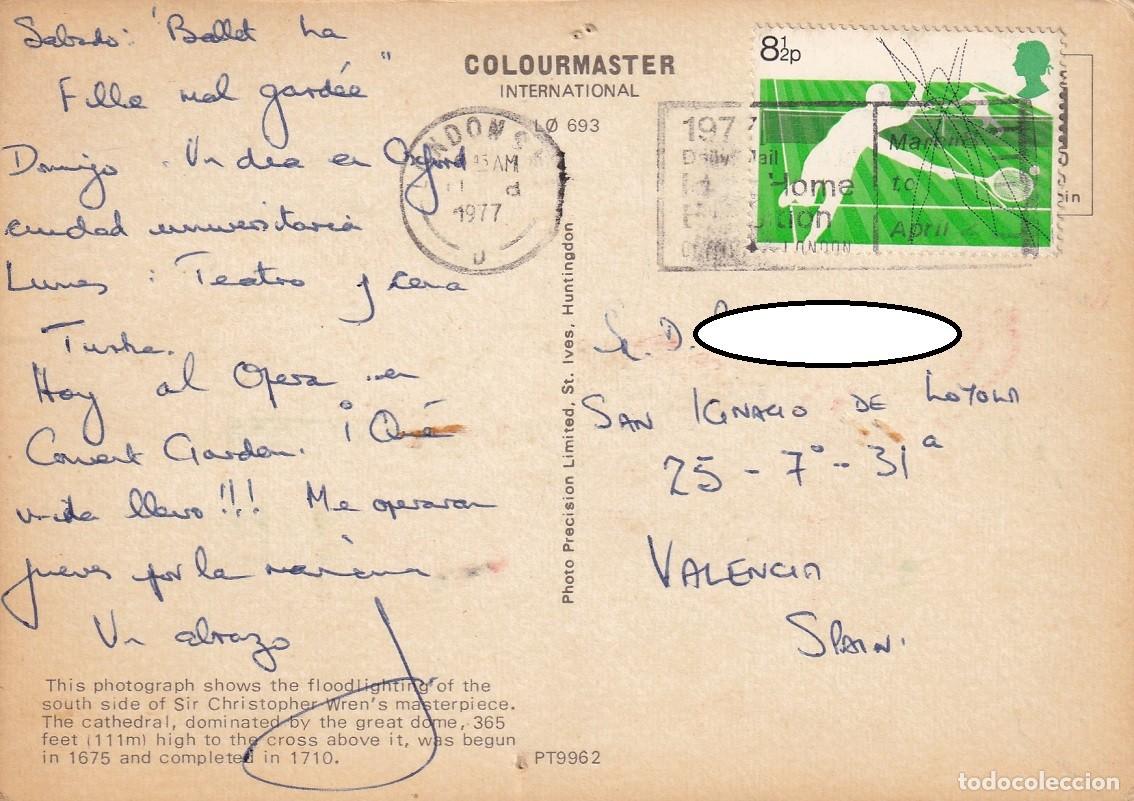 Sabado: "Ballet La
Fille mal gardée"
Domigo. Un dia en Oxford
ciudad universitaria
Lunes: Teatro y cena
Turka.
Hoy al Opera en
Convert Garden. ¡Qué
vida llevo!!! Me operaran
jueves por la mañana
Un abrazo
This photograph shows the floodlighting of the
south side of Sir Christopher Wren's masterpiece.
The cathedral, dominated by the great dome, 365
feet (111m) high to the cross above it, was begun
in 1675 and completed in 1710.
COLOURMASTER
INTERNATIONAL
LØ 693
PT9962
Photo Precision Limited, St. Ives, Huntingdon
LONDON S
AM
1977
D
8½p
197
Daily Mail
Home
to
April 2
LONDON
in
Sr. D.
SAN IGNACIO DE LOYOLA
25 - 7º - 31ª
VALENCIA
SPAIN.
todocoleccion